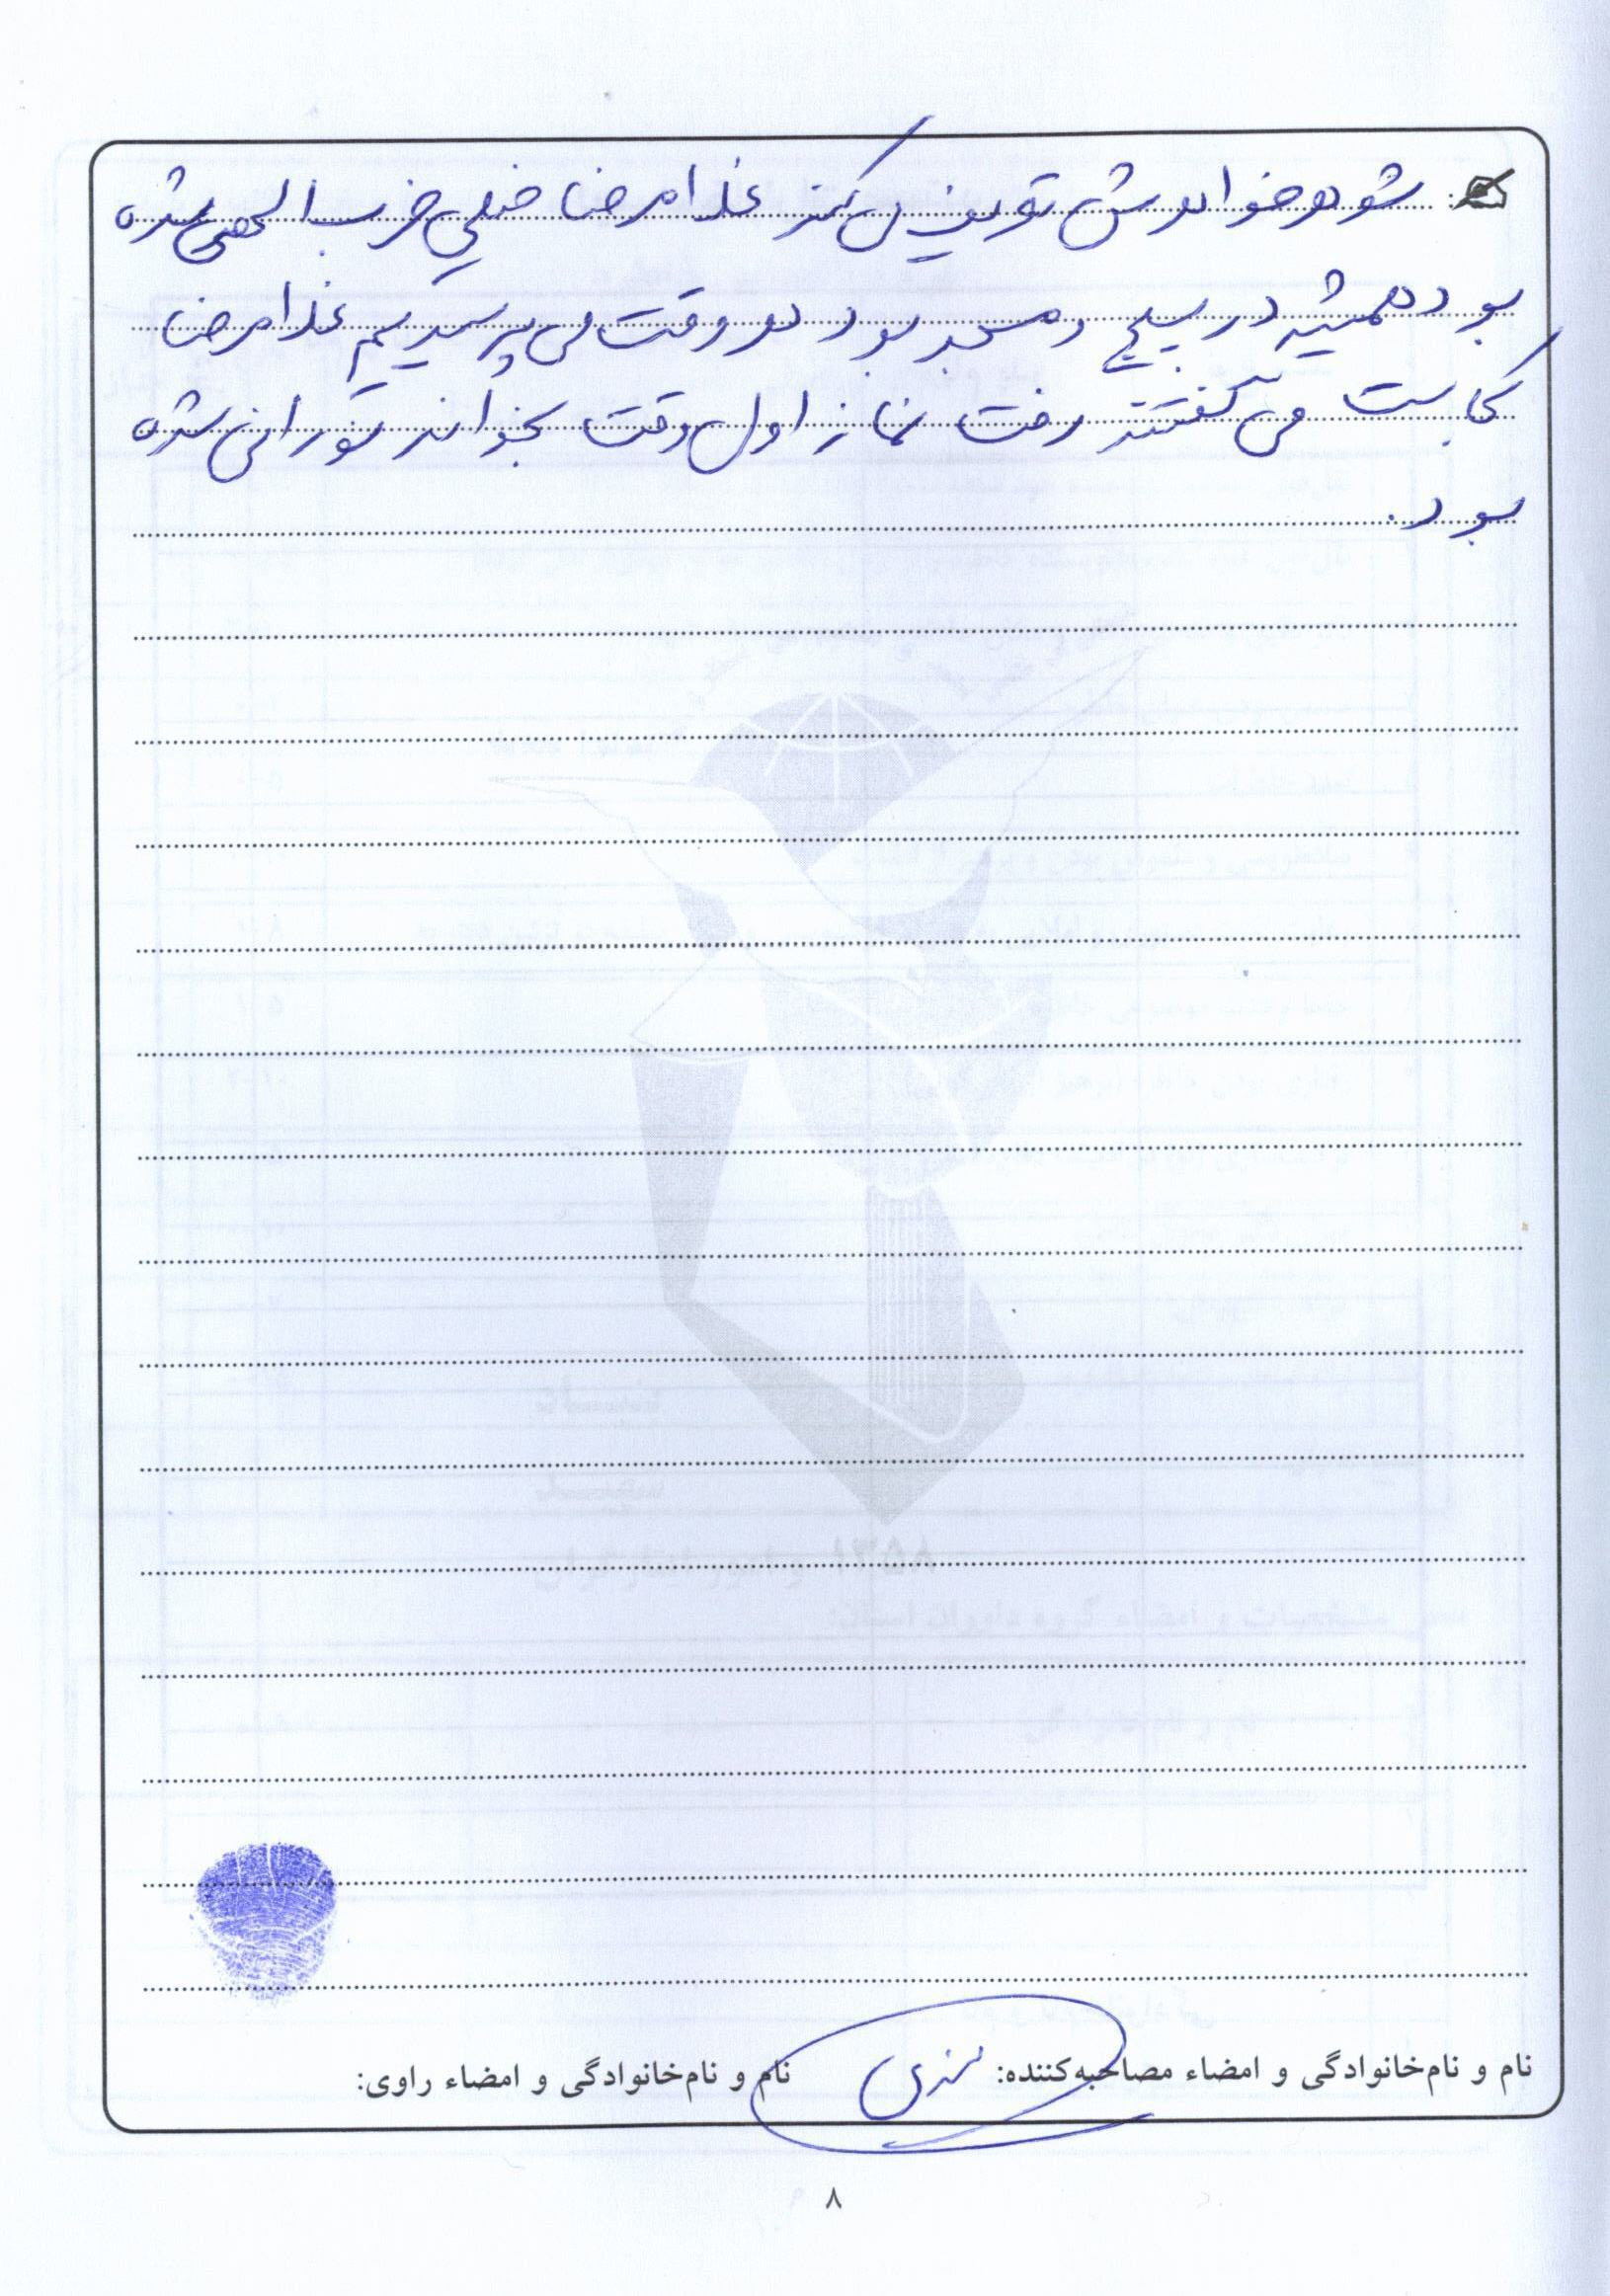 شوهر خواهرش تعریف می کند غلامرضا خیلی حزب الهی شده
بود همیشه در بسیج و مسجد بود هر وقت می پرسیدیم غلامرضا
کجاست می گفتند رفت نماز اول وقت بخواند نورانی شده
بود.
نام و نام‌خانوادگی و امضاء مصاحبه‌کننده:
نام و نام‌خانوادگی و امضاء راوی:
۸